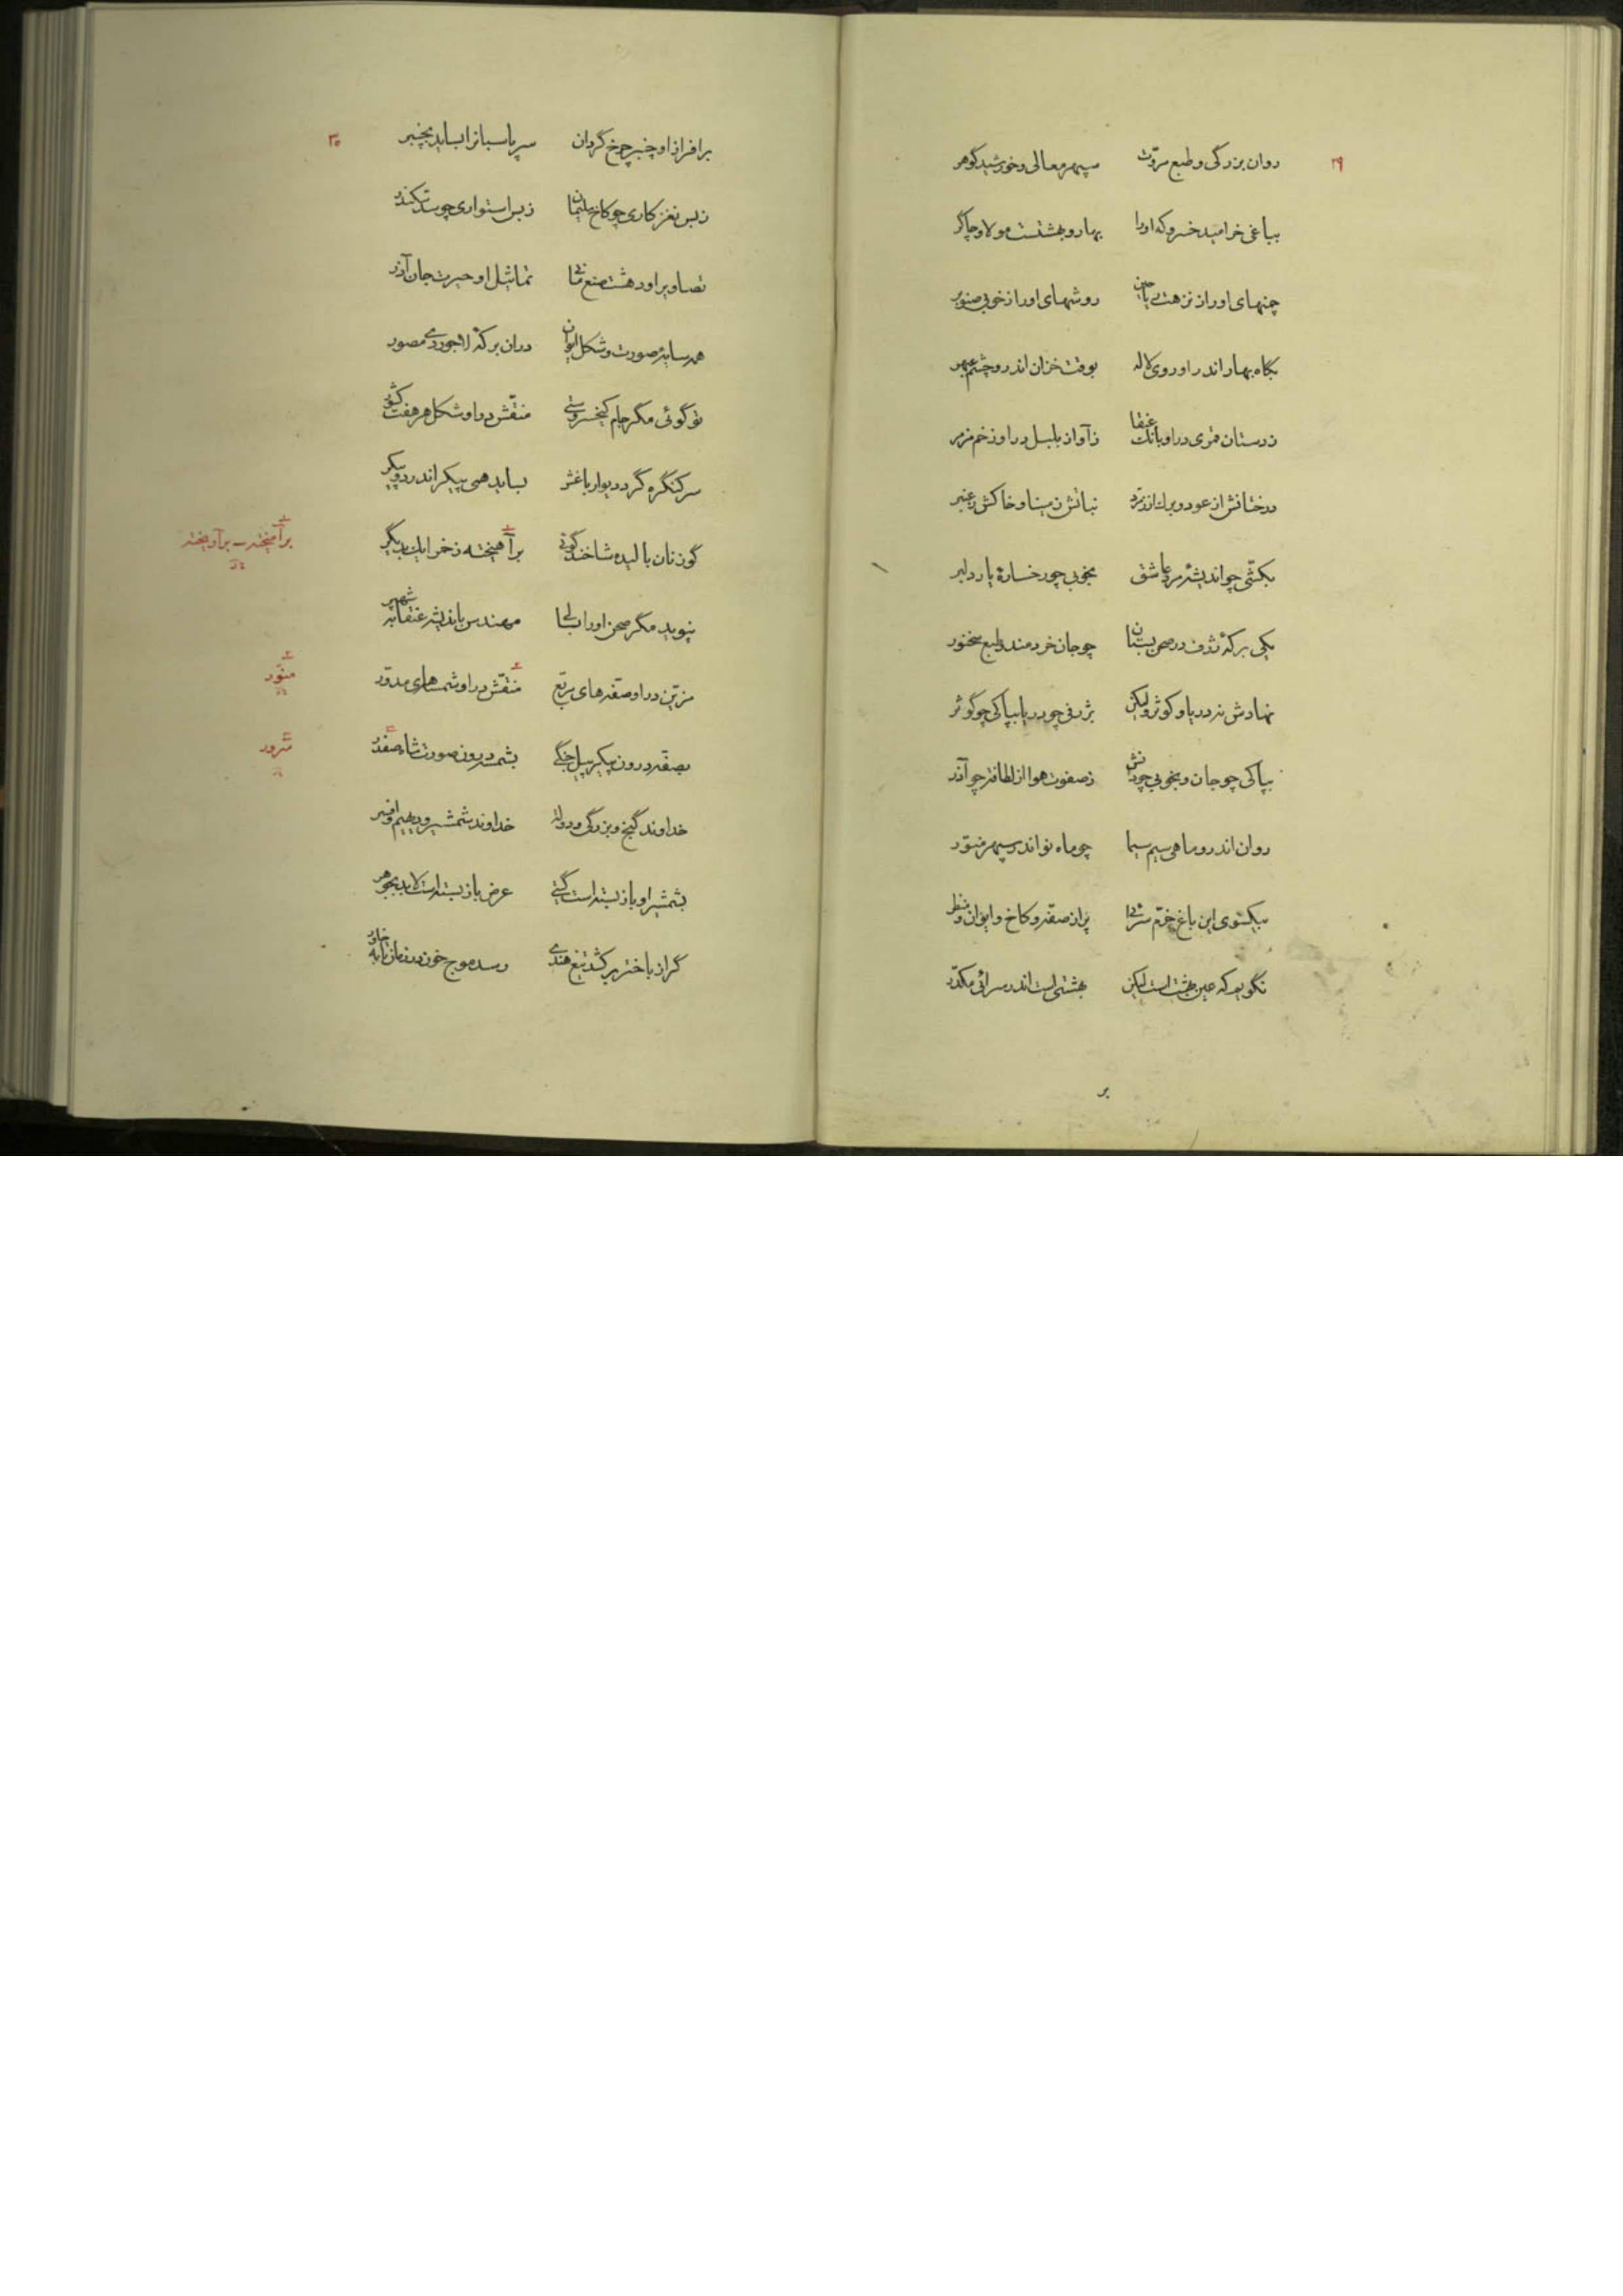 ۲۹
روان بزرگی و طبع مروّت سپهر معالی و خورشید گوهر
بباغی خرامید خسرو که او را بهار و بهشتست مولا و چاکر
چمنهای او را ز نزهت ریاحین روشهای او را ز خوبی صنوبر
بگاه بهار اندر او روی لاله بوقت خزان اندرو چشم عبهر
ز دستان قمری در او بانگ عنقا ز آواز بلبل در او زخم مزمر
درختانش از عود و برگ از زمرّد نباتش ز مینا و خاکش ز عنبر
بکشّی چو اندیشهٔ مرد عاشق بخوبی چو رخسارهٔ یار دلبر
یکی برکهٔ ژرف در صحن بستان چو جان خردمند و طبع سخنور
نهادش نه دریا و کوثر ولیکن بژرفی چو دریا بپاکی چو کوثر
بپاکی چو جان و بخوبی چو دانش ز صفوت هوا از لطافت چو آذر
روان اندرو ماهی سیم سیما چو ماه نو اندر سپهر منوّر
بیکسوی این باغ خرّم سرائی پر از صفّه و کاخ و ایوان و منظر
نگویم که عین بهشت است لیکن بهشتی است اندر سرائی مکدّر
بر
۳۰
بر افراز او چنبر چرخ گردان سر پاسبانرا بساید بچنبر
ز بس نغز کاری چو کاخ سلیمان ز بس استواری چو سد سکندر
تصاویر او دهشت صنع مانی تماثیل او حیرت جان آذر
همه سایهٔ صورت و شکل ایوان در آن برکهٔ لاجوردی مصور
تو گوئی مگر جام کیخسروستی منقّش در او شکل هر هفت کشور
سر کنگره گرد دیوار باغش بساید همی پیکر اندر دو پیکر
گوزنان بالیده شاخند گوئی برآهیخته زخم را یک بدیگر
برآمیخته ـ برآویخته
نپوید مگر صحن او را بسالی مهندس باندیشه عنقا به شهپر
مزیّن در او صفّه‌های مربّع منقّش در او شمسهای مدوّر
منوّر
بصفّه درون پیکر پیل جنگی بشمسه درون صورت شاه صفدر
خداوند گنج و بزرگی و دولت خداوند شمشیر و دیهیم و افسر
بشمشیر او باز بسته است گیتی عرض باز بسته است لابد بجوهر
گر از باختر بر کشد تیغ هندی رسد موج خون در زمان تا به خاور